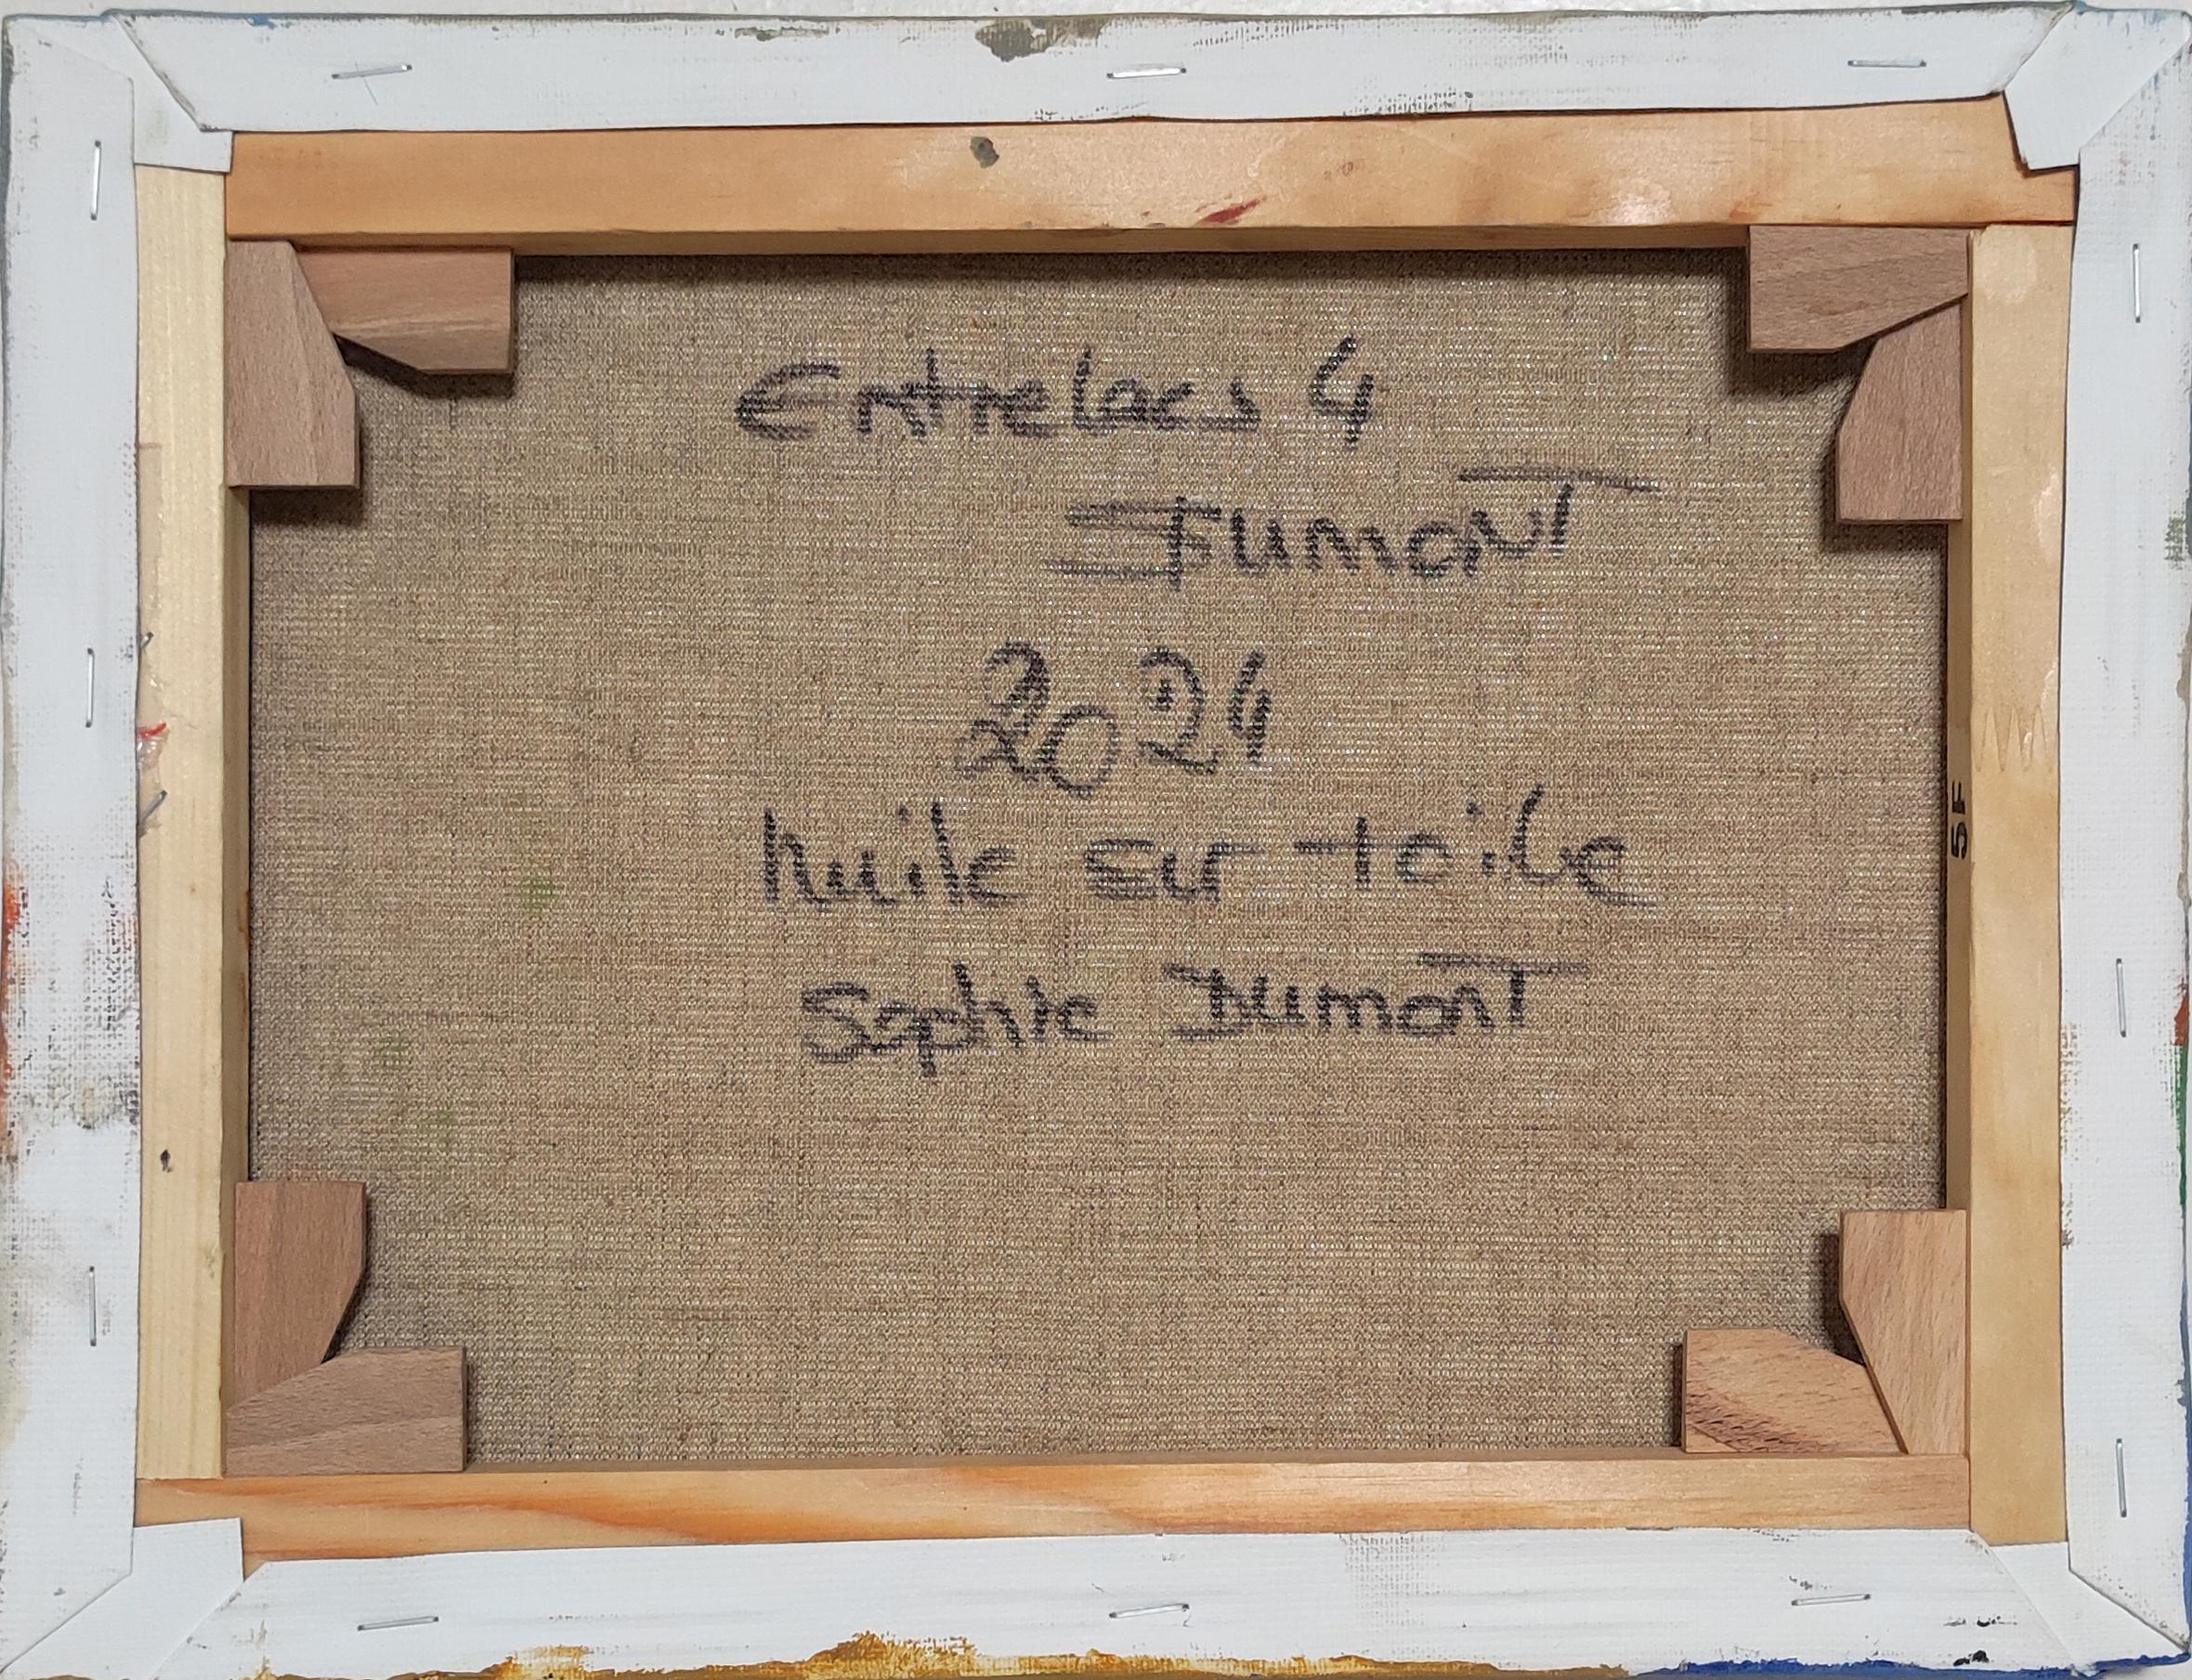 Entrelacs 4
Dumont
2024
huile sur toile
Sophie Dumont
5F